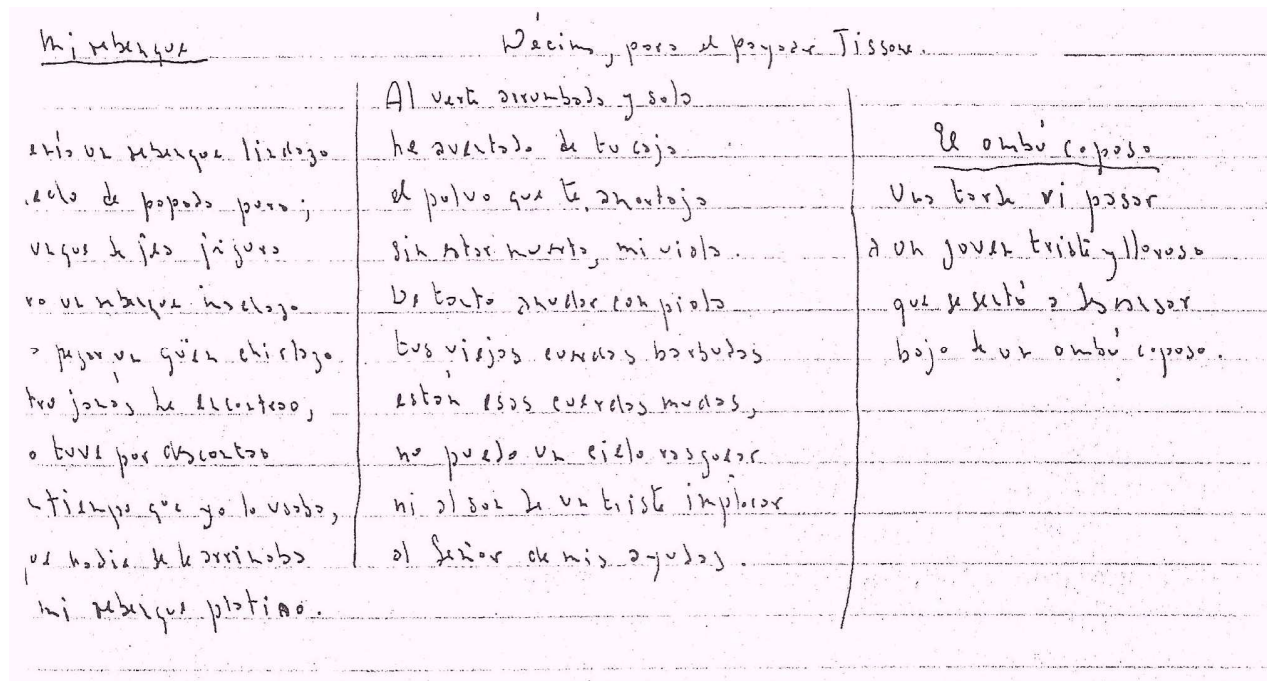 Mi rebenque
enía un rebenque lindazo
de papada pura;
unque de fea figura
ro un rebenque machazo
a pegar un güen chirlazo
tro jamás he encontrao,
o tuve por descontao
n tiempo que yo lo usaba,
ue nadie se le arrimaba
mi rebenque platiao.
Décima, para el payador Tissone.
Al verte arrumbada y sola
he aventado de tu caja
el polvo que te amortaja
sin estar muerta, mi viola.
De tanto anudar con piola
tus viejas cuerdas barbudas
están esas cuerdas mudas,
no puedo un cielo rasguear
ni al son de un triste implorar
al Señor de mis ayudas.
El ombú coposo
Una tarde vi pasar
a un joven triste y lloroso
que se sentó a descansar
bajo de un ombú coposo.